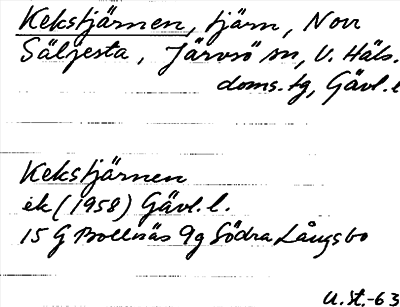 Kekstjärnen, tjärn, Norr
Säljesta, Järvsö sn, V. Häls.
doms. tg, Gävl. l
Kekstjärnen
ek (1958) Gävl. l.
15 G Bollnäs 9g Södra Långsbo
U. St.-63